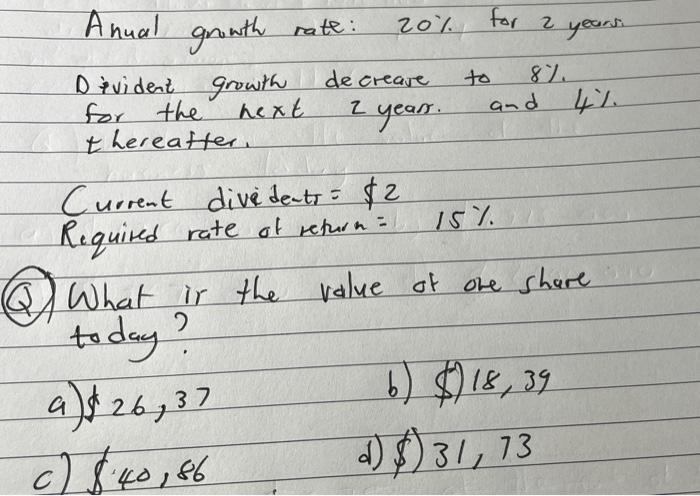 Anual growth rate: 20% for 2 years.
Divident growth decreave to 8%.
for the next 2 years. and 4%.
thereafter.
Current dividents = $2
Required rate of return = 15%.
Q) What is the value of one share
today?
a) $26,37 b) $) 18,39
c) $40,86 d) $) 31,73